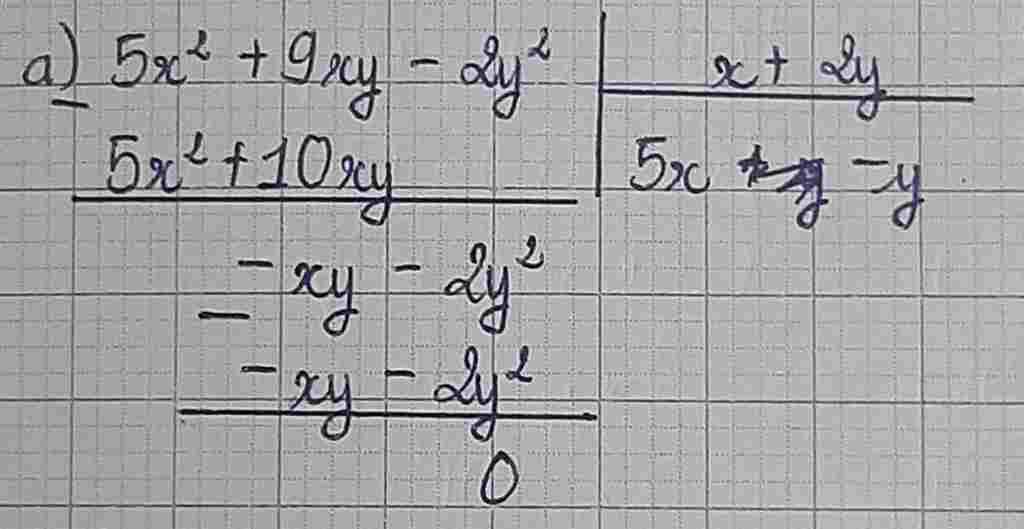 a) 5x² + 9xy - 2y² | x + 2y
- 5x² + 10xy | 5x - y
- xy - 2y²
-
- xy - 2y²
0